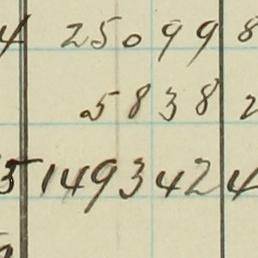 4 25099 8
5838 2
5 149342 4